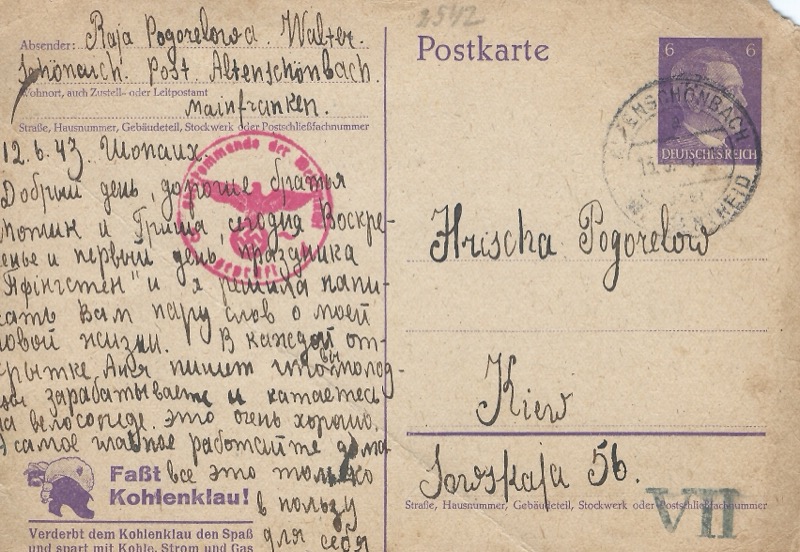 2542
Absender: Raja Pogorelowa. Walter.
Schönaich. Post. Altenschönbach.
Wohnort, auch Zustell- oder Leitpostamt
Mainfranken.
Straße, Hausnummer, Gebäudeteil, Stockwerk oder Postschließfachnummer
12.6.43
Добрий день, дорогие братья
Мотик и Гриша, сегодня Воскре-
сенье и первый день праздника
"Пфінгстен" и я решила напи-
сать Вам пару слов о моей
новой жизни. В каждой от-
крытке Аня пишет что вы молод-
цы зарабатываете и катаетесь
на велосопиде. это очень хорошо.
А самое главное работайте дома
все это только
в пользу
для себя
Faßt
Kohlenklau!
Verderbt dem Kohlenklau den Spaß
und spart mit Kohle, Strom und Gas
Postkarte
6 6
DEUTSCHES REICH
Hrischa Pogorelow
Kiew
56.
Straße, Hausnummer, Gebäudeteil, Stockwerk oder Postschließfachnummer
VII